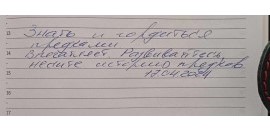 13 Знать и гордиться
предками
14 Впечатляет Развивайтесь,
несите историю предков
15 17.04.2024
16
17